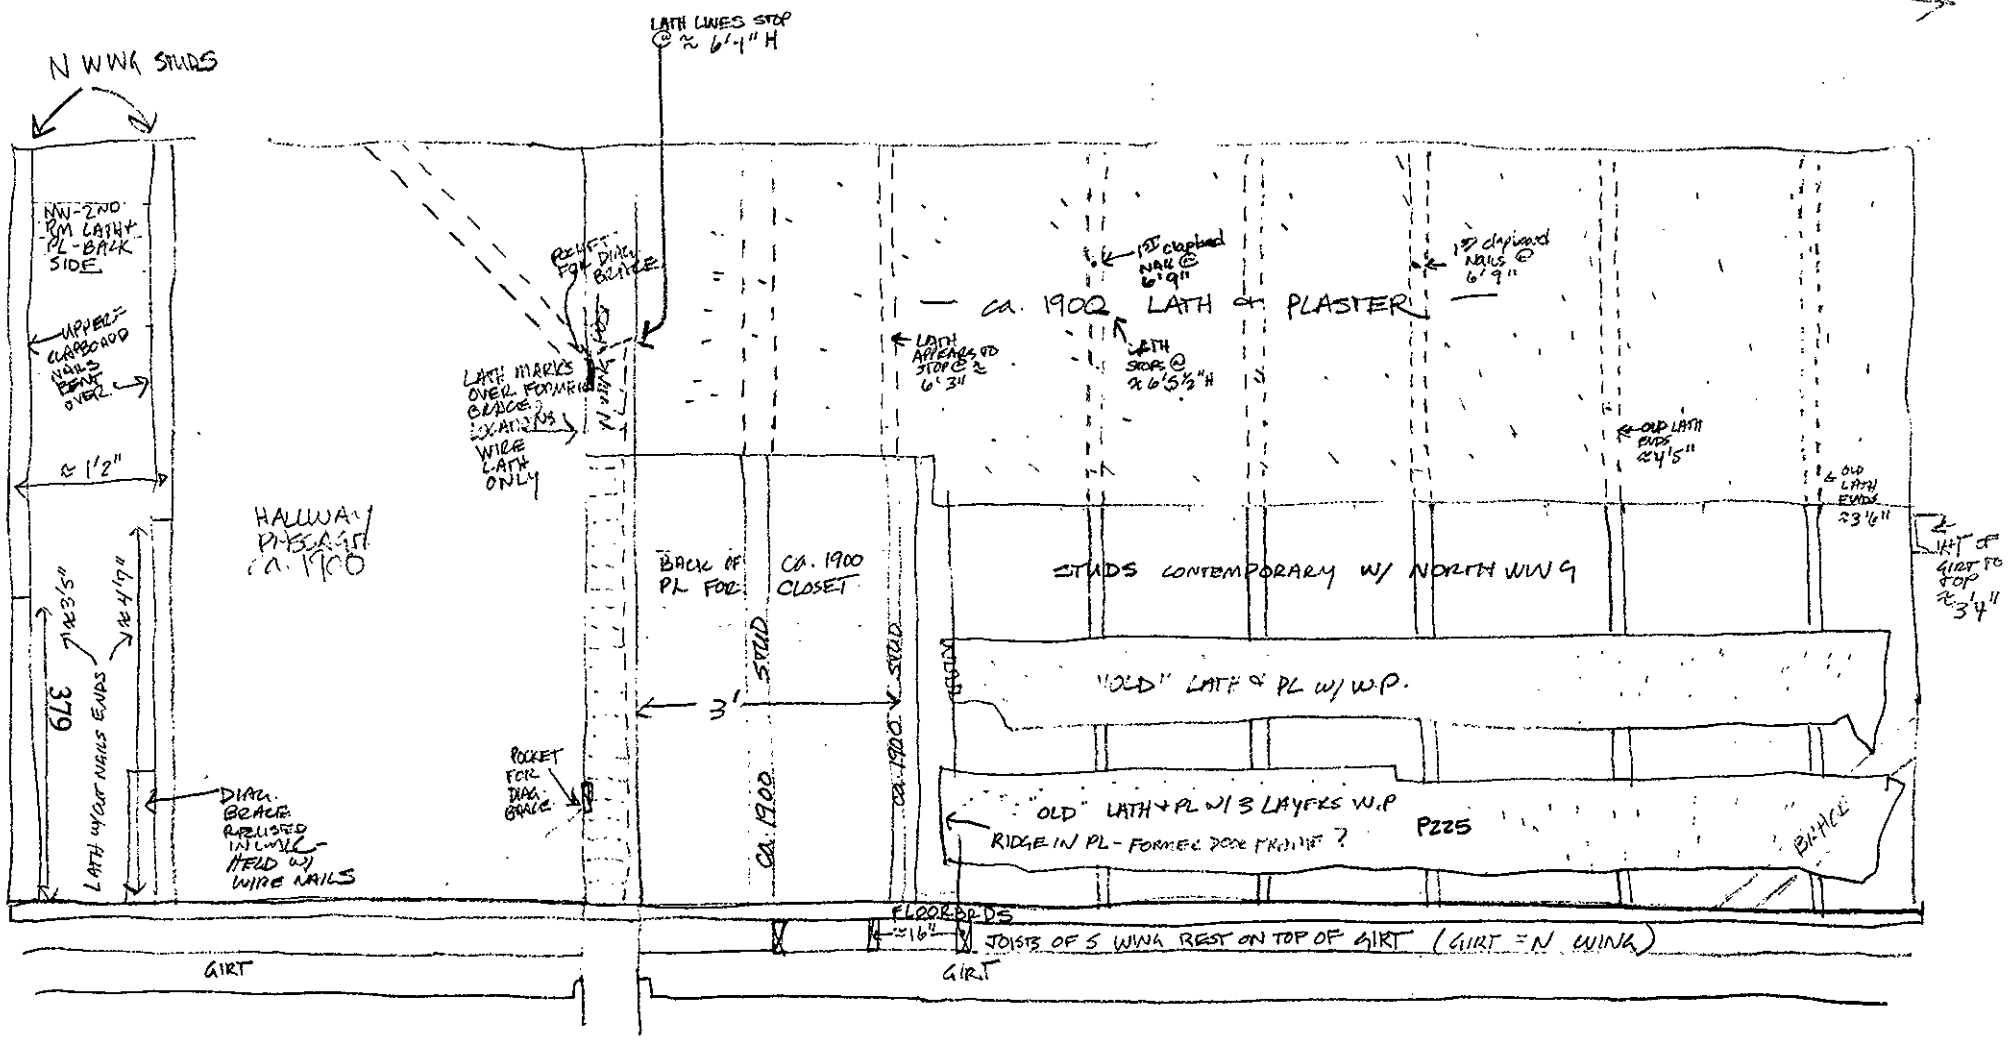 LATH LINES STOP
@ ≈ 6'-1" H
N WING STUDS
NW-2ND
RM LATH +
PL-BACK
SIDE
UPPER
CLAPBOARD
NAILS
BENT
OVER
≈ 1'2"
HALLWAY
PASSAGE
ca. 1900
≈3'5"
≈4'7"
379
LATH W/OUT NAILS ENDS
DIAG.
BRACE
REUSED
IN WALL -
HELD W/
WIRE NAILS
POCKET
FOR DIAG.
BRACE
N WING POST
LATH MARKS
OVER FORMER
BRACE
LOCATIONS
WIRE
LATH
ONLY
POCKET
FOR
DIAG.
BRACE
BACK OF
PL FOR
CA. 1900
CLOSET
3'
CA. 1900 STUD
CA. 1900 STUD
LATH
APPEARS TO
STOP @ ≈
6'3"
1ST clapboard
NAIL @
6'9"
1ST clapboard
NAILS @
6'9"
— ca. 1900 LATH & PLASTER —
LATH
STOPS @
≈ 6'5½"H
OLD LATH
ENDS
≈4'5"
OLD
LATH
ENDS
≈3'6"
HT OF
GIRT TO
TOP
≈ 3'4"
STUDS CONTEMPORARY W/ NORTH WING
"OLD" LATH & PL W/ W.P.
"OLD" LATH + PL W/ 3 LAYERS W.P
RIDGE IN PL - FORMER DOOR FRAME ?
P225
BRACE
FLOORBRDS
≈16"
JOISTS OF S WING REST ON TOP OF GIRT (GIRT = N WING)
GIRT
GIRT